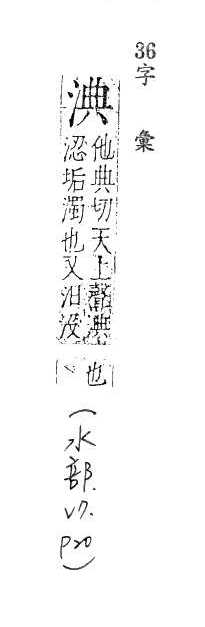 36字彙
淟
他典切天上聲淟
涊垢濁也又汨沒
也
(水部.
V7.
P20)